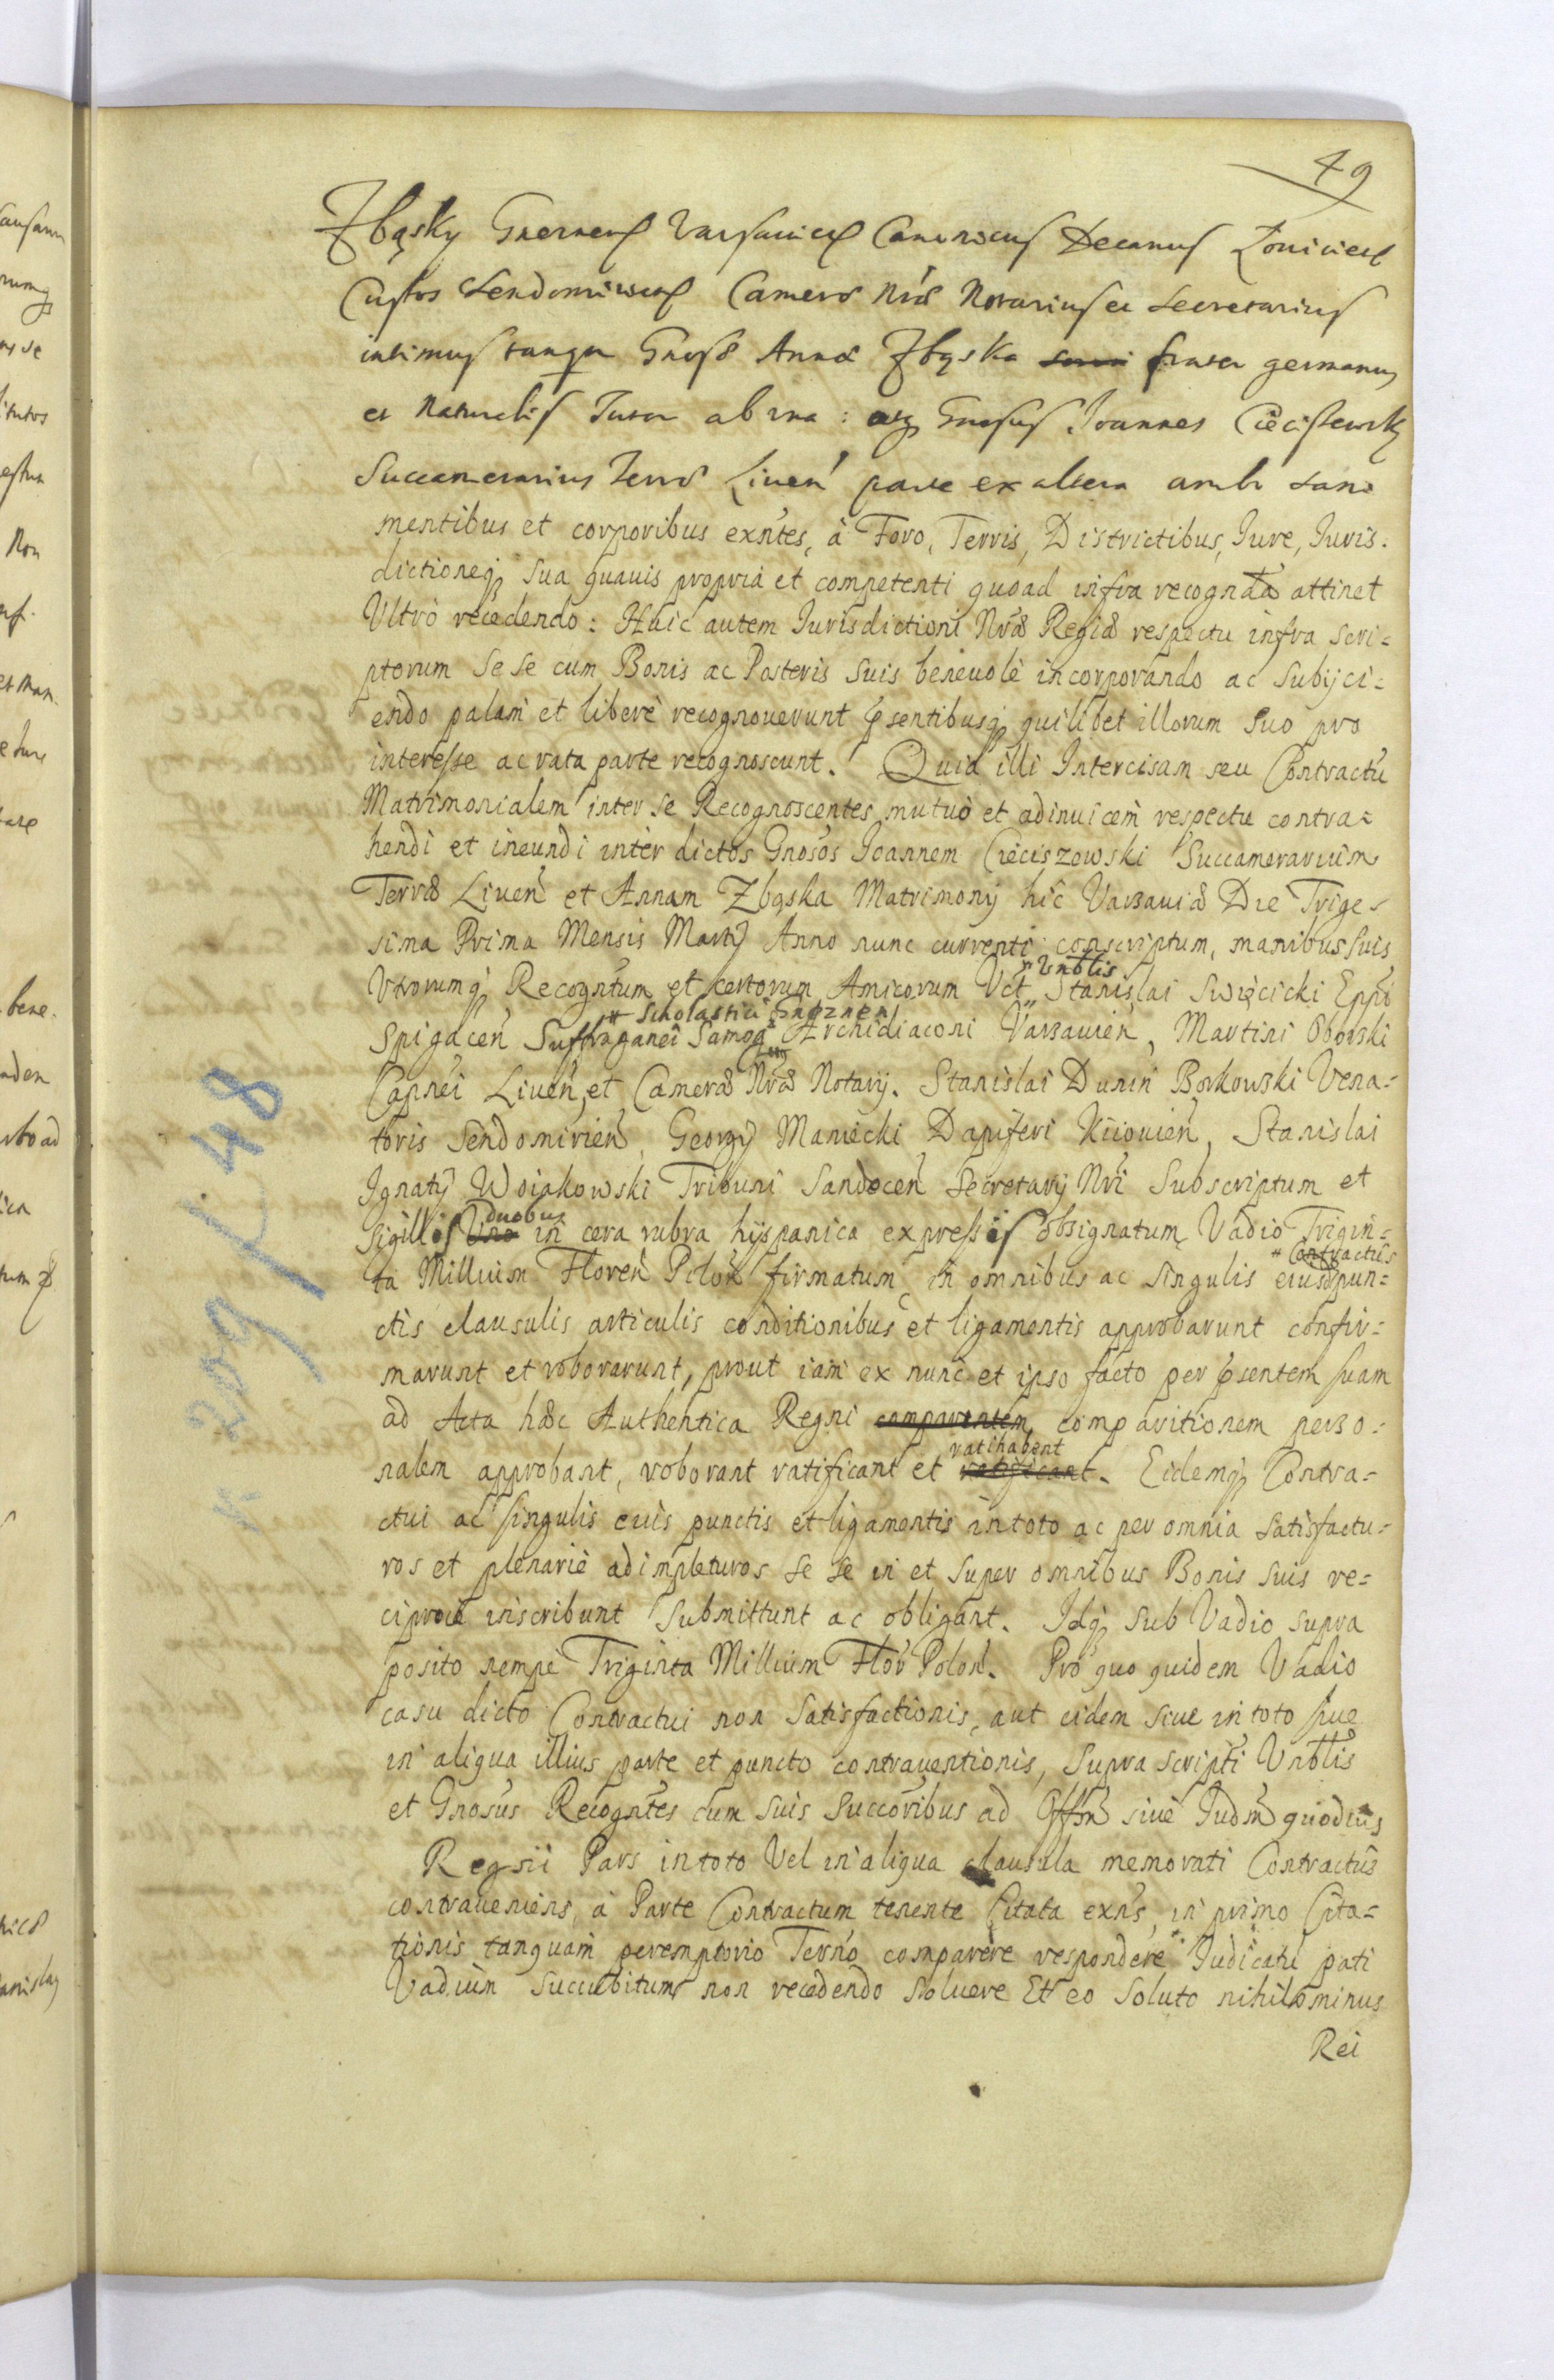 49
Zbąsky Gnesnen Varsauien Canonicus Decanus Louicien
Custos Sendomirien Camerae Nrae Notarius et Secretarius
intimus tanqm Gnosae Annae Zbąska frater germanus
et Naturalis Tutor ab vna : atq Gnosus Joannes Ciecissewsky
Succamerarius Terrae Liuen parte ex altera ambo sani
mentibus et corporibus exntes, à Foro, Terris, Districtibus, Jure, Juris.
dictioneq sua quauis propria et competenti quoad infra recognda attinet
Vltrò recedendo : Huic autem Jurisdictioni Nrae Regiae respectu infra scri=
ptorum Se se cum Bonis ac Posteris suis beneuolè incorporando ac subijci=
endo palam et liberè recognouerunt psentibusq quilibet illorum suo pro
interesse ac rata parte recognoscunt. Quia illi Intercisam seu Contractu
Matrimonialem inter se Recognoscentes mutuò et adinuicem respectu contra=
hendi et ineundi inter dictos Gnosos Joannem Cieciszowski Succamerarium
Terrae Liuen et Annam Zbąska Matrimonij hic Varsauiae Die Trige=
sima Prima Mensis Martij Anno nunc currenti conscriptum, manibus suis
Vtrorumq Recogntum et certorum Amicorum Vct # Vnblis Stanislai Swięcicki Eppi
Spigacen Suffraganei Samog # Scholastici Gneznen Archidiaconi Varsauien, Martini Oborski
Capnei Liuen, et Camerae Nrae Notarij. Stanislai Dunin Borkowski Vena=
toris Sendomirien, Georgij Maniecki Dapiferi Kiiouien, Stanislai
Ignatij Woiakowski Tribuni Sandecen Secretarij Nri Subscriptum et
Sigillis Vno duobus in cera rubra hyspanica expressis obsignatum, Vadio Trigin=
ta Millium Floren Polon firmatum, in omnibus ac singulis eiusd # Contractus pun=
ctis clausulis articulis conditionibus et ligamentis approbarunt confir=
marunt et roborarunt, prout iam ex nunc et ipso facto per psentem suam
ad Acta haec Authentica Regni comparentem comparitionem perso=
nalem approbant, roborant ratificant et ratificant ratihabent. Eidemq Contra=
ctui ac singulis eius punctis et ligamentis in toto ac per omnia satisfactu=
ros et plenariè adimpleturos se se in et super omnibus Bonis suis re=
ciprocè inscribunt submittunt ac obligant. Idq sub Vadio supra
posito nempe Triginta Millium Flor Polon. Pro quo quidem Vadio
casu dicto Contractui non satisfactionis, aut eidem siue in toto siue
in aliqua illius parte et puncto contrauentionis, supra scripti Vnblis
et Gnosus Recogntes cum suis succoribus ad Offm siue Judm quoduis
Regni Pars in toto Vel in aliqua clausula memorati Contractus
contraueniens, à Parte Contractum tenente Citata exns, in primo Cita=
tionis tanquam peremptorio Termo comparere respondere Judicatu pati
Vadium succubitum non recedendo soluere Et eo soluto nihilominus
Rei
k 209 / k. 48